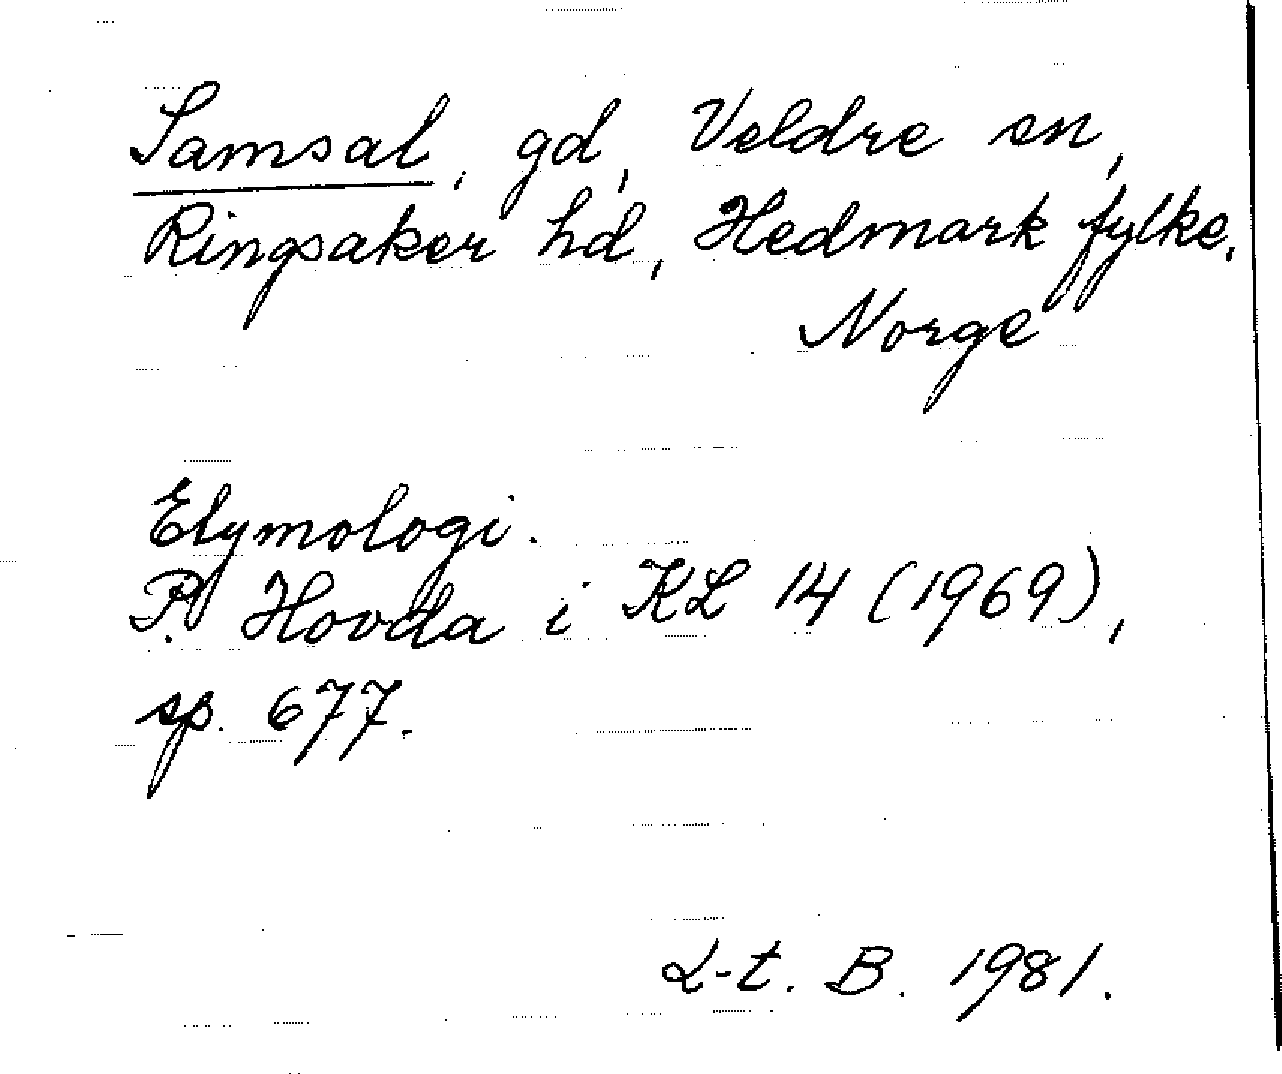 Samsal, gd, Veldre sn,
Ringsaker hd, Hedmark fylke,
Norge
Etymologi.
P. Hovda i KL 14 (1969),
sp. 677.
L-t. B. 1981.